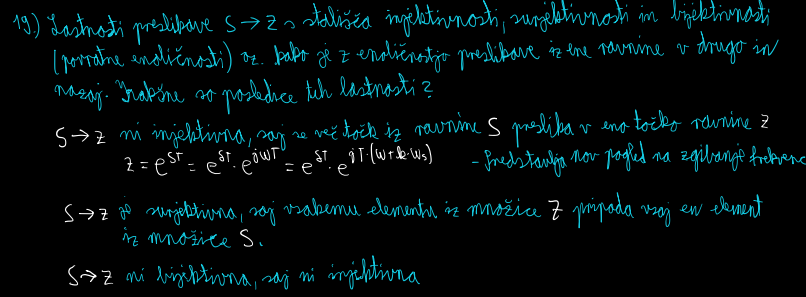 19.) Lastnosti preslikave S→Z s stališča injektivnosti, surjektivnosti in bijektivnosti
(povratne enoličnosti) oz. kako je z enoličnostjo preslikave iz ene ravnine v drugo in
nazaj. Kakšne so posledice teh lastnosti?
S→Z ni injektivna, saj se več točk iz ravnine S preslika v eno točko ravnine Z
z = e^{sT} = e^{σT} · e^{jωT} = e^{σT} · e^{jT·(ω+k·ω_s)} - Predstavlja nov pogled na zgibanje frekvenc
S→Z je surjektivna, saj vsakemu elementu iz množice Z pripada vsaj en element
iz množice S.
S→Z ni bijektivna, saj ni injektivna